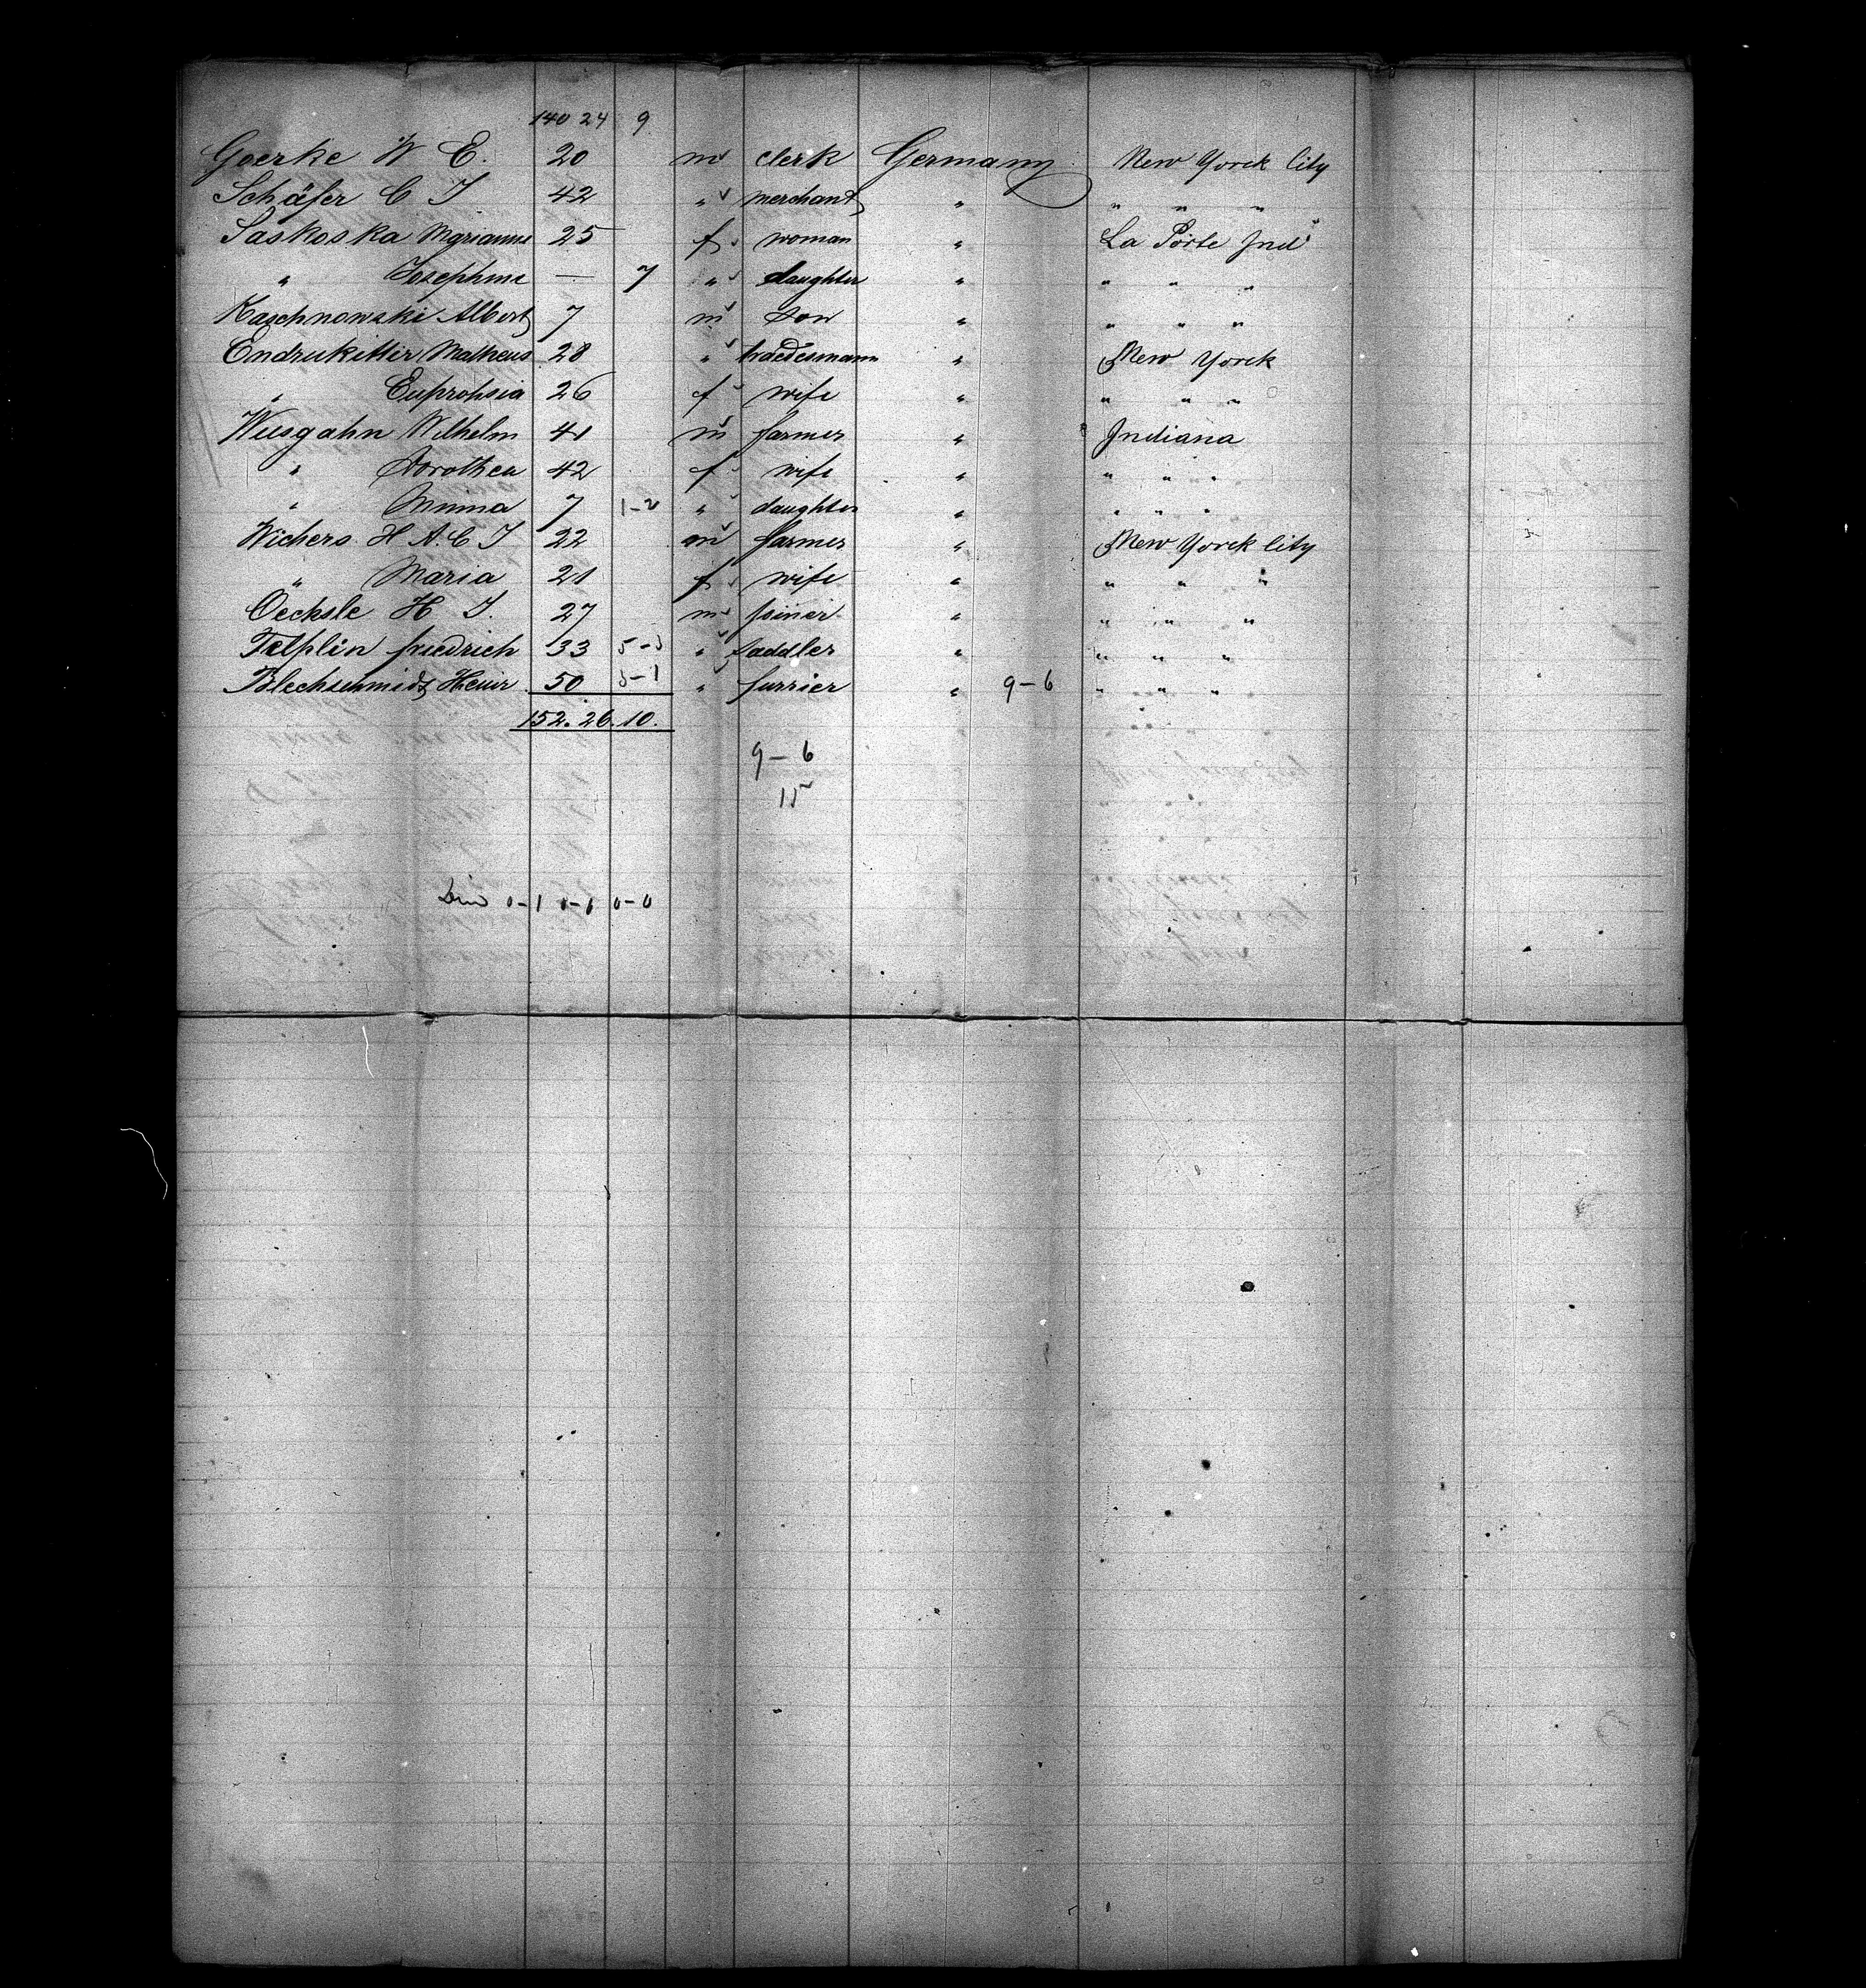 140 24 9
Goerke W E. 20 m clerk Germany New Yorck City
Schäfer C J 42 " merchant " " " "
Saskoska Marianne 25 f woman " La Porte Ind
" Josephine — 7 " daughter " " " "
Kaschnowski Albert 7 m son " " " "
Endrukittir Matheus 28 " tradesmann " New Yorck
" Euprohsia 26 f wife " " " "
Wiesgahn Wilhelm 41 m farmer " Indiana
" Dorothea 42 f wife " " " "
" Minna 7 1-2 " daughter " " " "
Wichers H A. C J 22 m farmer " New Yorck City
" Maria 21 f wife " " " "
Oechsle H J. 27 m joiner " " " "
Telplin friedrich 33 5-3 " saddler " " " "
Blechschmidt Heinr. 50 3-1 " furrier " 9-6 " " "
152. 26. 10.
9-6
15
0-1 1-1 0-0